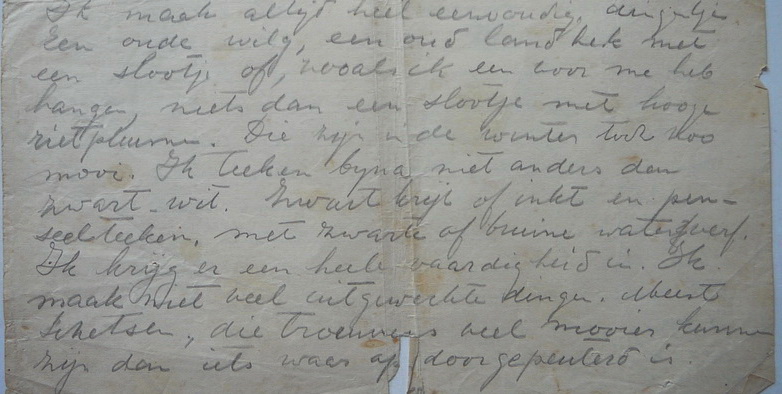 Ik maak altijd heel eenvoudige dingetjes
Een oude wilg, een oud landhek met
een slootje of, zooals ik een voor me heb
hangen, niets dan een slootje met hooge
rietpluimen. Die zijn in de winter toch zoo
mooi. Ik teeken byna niet anders dan
zwart-wit. Zwart krijt of inkt en pen-
seelteeken, met zwarte of bruine waterverf.
Ik krijg er een heele vaardigheid in. Ik
maak niet veel uitgewerkte dingen. Meest
schetsen, die trouwens veel mooier kunnen
zijn dan iets waar op doorgepeuterd is.